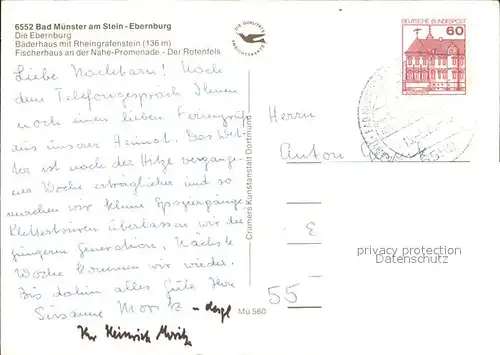 6552 Bad Münster am Stein - Ebernburg
Die Ebernburg
Bäderhaus mit Rheingrafenstein (136 m)
Fischerhaus an der Nahe-Promenade - Der Rotenfels
DIE QUALITÄTS
ANSICHTSKARTE
DEUTSCHE BUNDESPOST
60
Liebe Nachbarn! Nach
dem Telefongespräch Ihnen
noch einen lieben Ferngruß
aus unserer Heimat. Das Wet-
ter ist nach der Hitze vergange-
ner Woche erträglicher und so
machen wir kleine Spaziergänge
Klettertouren überlassen wir der
jüngeren Generation. Nächste
Woche kommen wir wieder.
Bis dahin alles Gute Ihre
Susanne Moritz - desgl
Ihr Heinrich Moritz
Cramers Kunstanstalt Dortmund
Mü 560
Herrn
Anton
E
55
privacy protection
Datenschutz